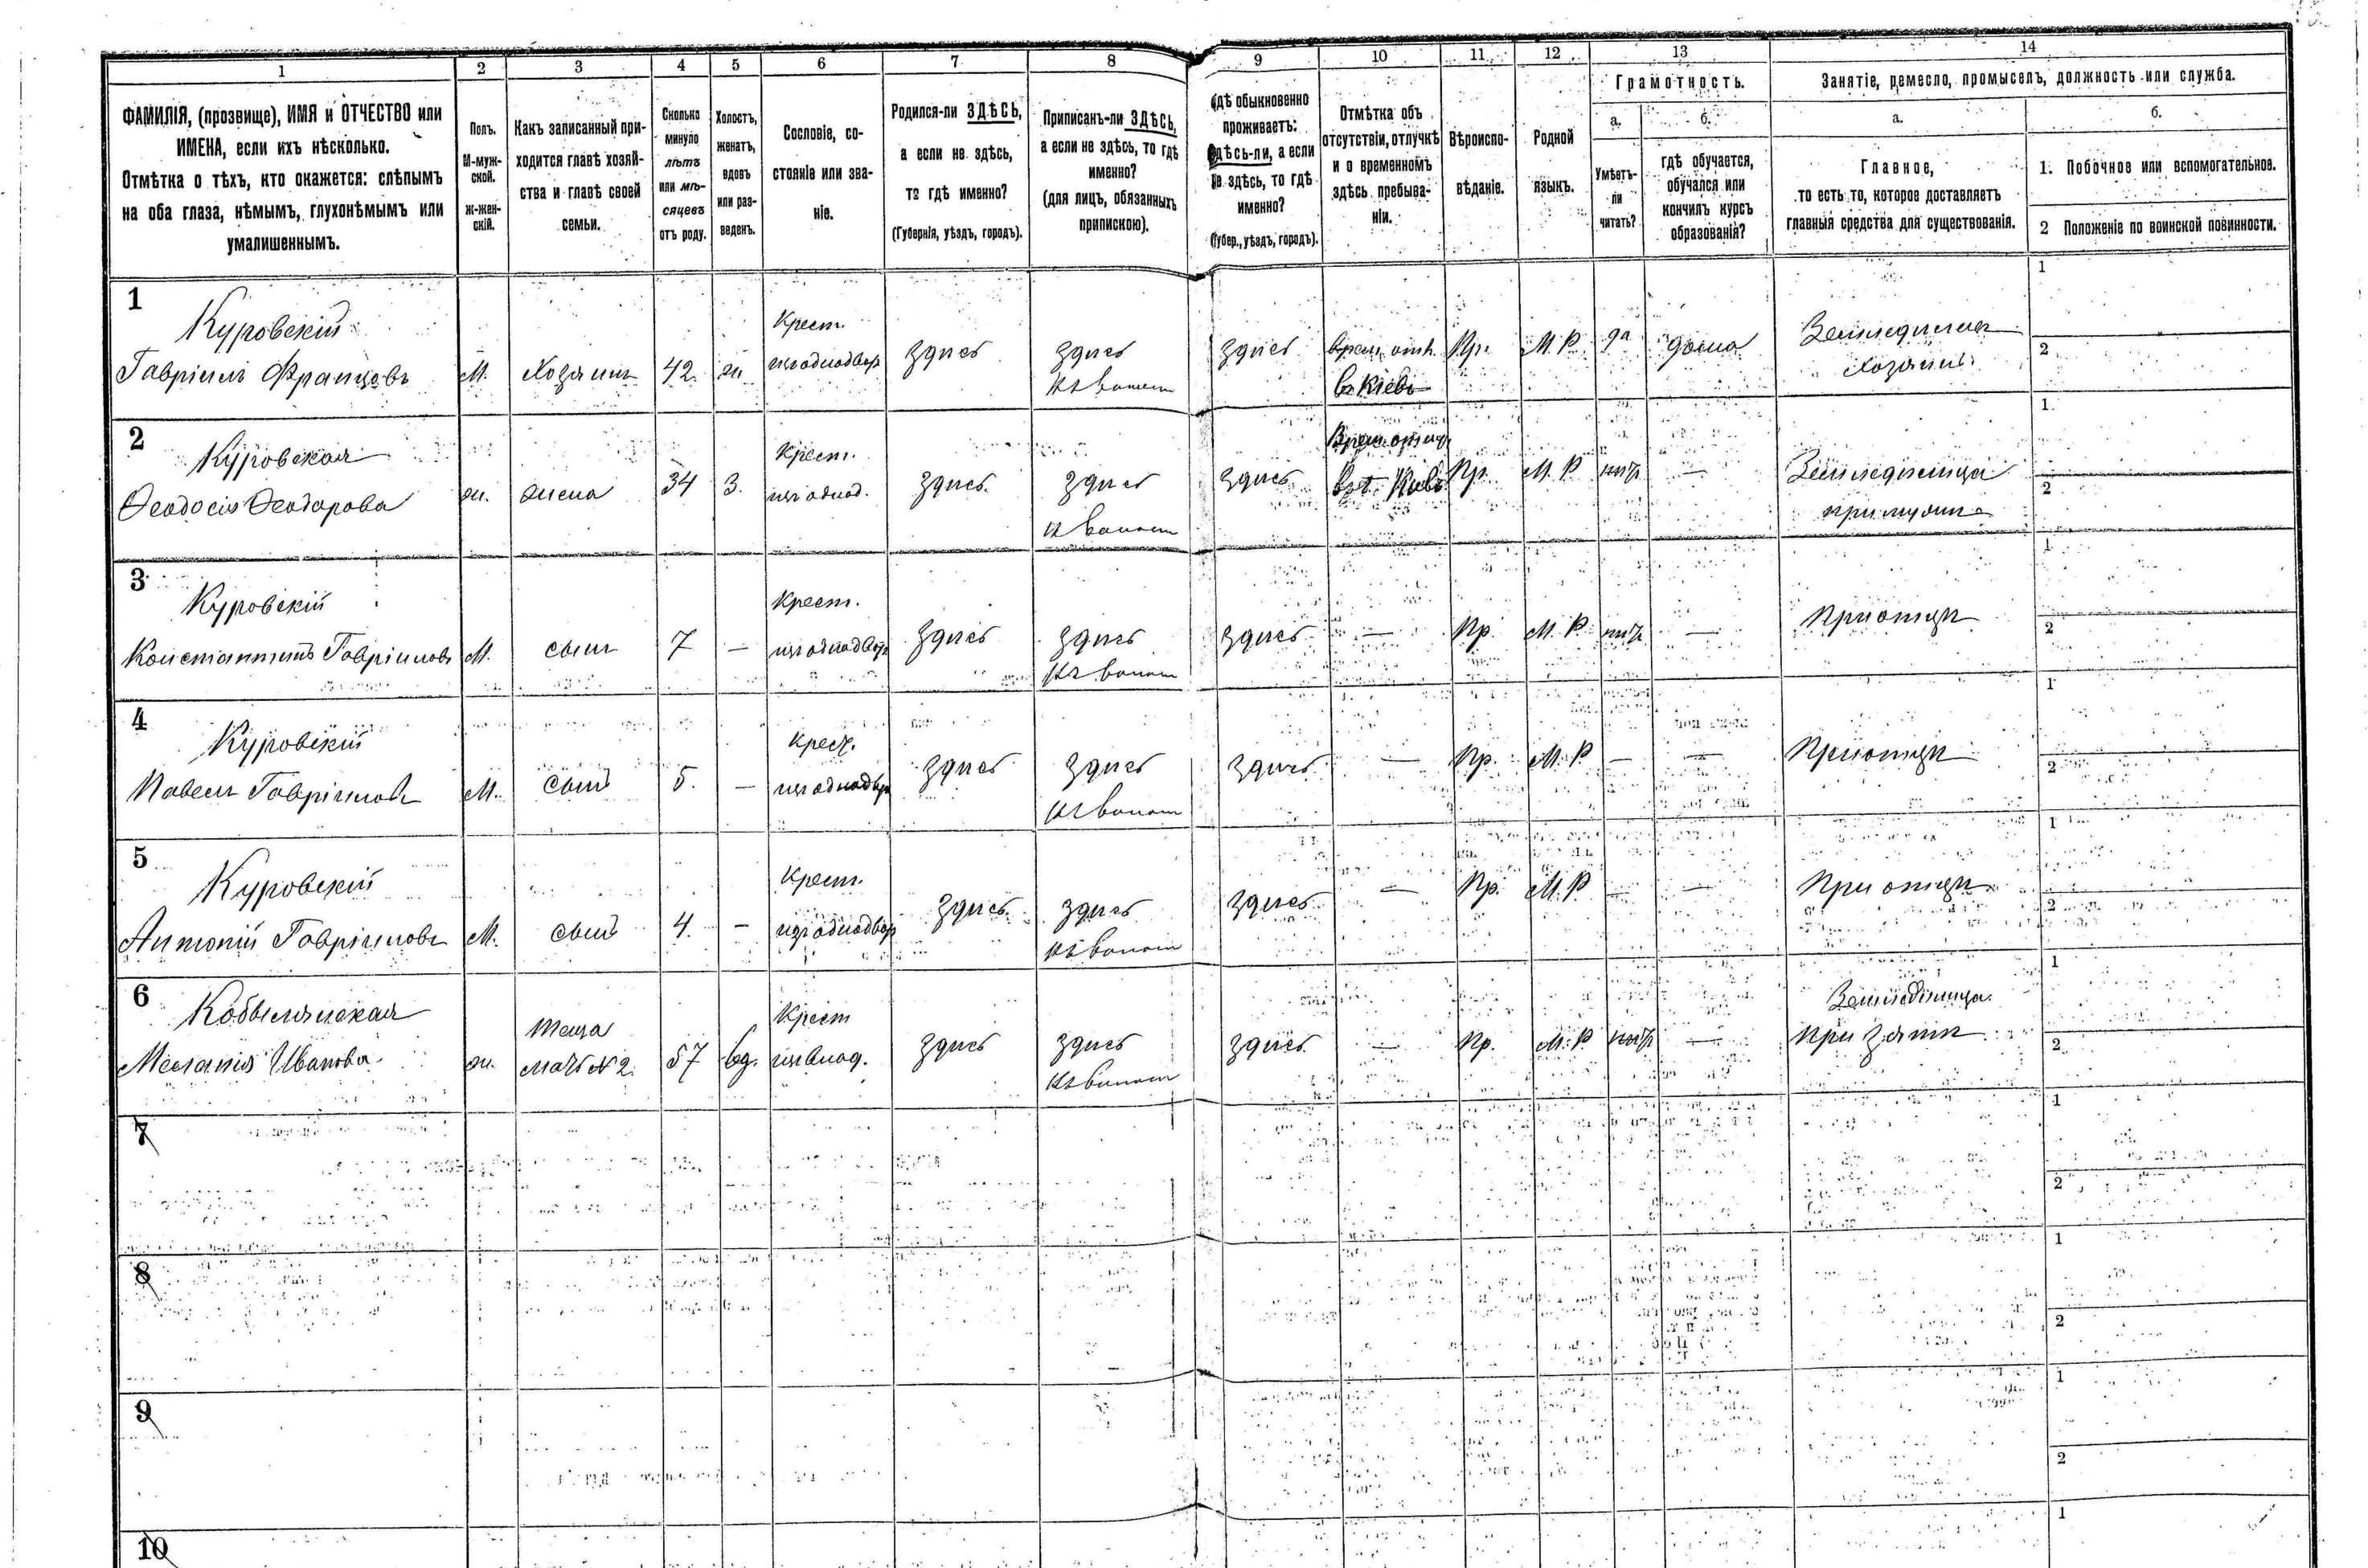 1 2 3 4 5 6 7 8 9 10 11 12 13 14
ФАМИЛІЯ, (прозвище), ИМЯ и ОТЧЕСТВО или
ИМЕНА, если ихъ нѣсколько.
Отмѣтка о тѣхъ, кто окажется: слѣпымъ
на оба глаза, нѣмымъ, глухонѣмымъ или
умалишеннымъ.
Полъ.
М-муж-
ской.
ж-жен-
скій.
Какъ записанный при-
ходится главѣ хозяй-
ства и главѣ своей
семьи.
Сколько
минуло
лѣтъ
или мѣ-
сяцевъ
отъ роду.
Холостъ,
женатъ,
вдовъ
или раз-
веденъ.
Сословіе, со-
стояніе или зва-
ніе.
Родился-ли ЗДѢСЬ,
а если не здѣсь,
то гдѣ именно?
(Губернія, уѣздъ, городъ).
Приписанъ-ли ЗДѢСЬ,
а если не здѣсь, то гдѣ
именно?
(для лицъ, обязанныхъ
припискою).
Гдѣ обыкновенно
проживаетъ:
здѣсь-ли, а если
не здѣсь, то гдѣ
именно?
(Губер., уѣздъ, городъ).
Отмѣтка объ
отсутствіи, отлучкѣ
и о временномъ
здѣсь пребыва-
ніи.
Вѣроиспо-
вѣданіе.
Родной
языкъ.
Грамотность.
а.
Умѣетъ-
ли
читать?
б.
гдѣ обучается,
обучался или
кончилъ курсъ
образованія?
Занятіе, ремесло, промыселъ, должность или служба.
а.
Главное,
то есть то, которое доставляетъ
главныя средства для существованія.
б.
1. Побочное или вспомогательное.
2 Положеніе по воинской повинности.
1
Куровскій
Гавріилъ Францовъ
М.
Хозяинъ
42
ж
Крест.
изъ однодвор
здѣсь
здѣсь
къ волост
здѣсь
врем. отл.
въ Кіевъ
Пр.
М. Р.
да
дома
Земледѣлецъ
хозяинъ
1
2
2
Куровская
Феодосія Феодорова
ж.
жена
34
З.
Крест.
изъ однод.
здѣсь
здѣсь
къ волост
здѣсь
Пр.
М. Р
нѣтъ
—
Земледѣлица
при мужѣ
1
2
3
Куровскій
Константинъ Гавріиловъ
М.
сынъ
7
—
Крест.
изъ однодвор
здѣсь
здѣсь
къ волост
здѣсь
—
Пр.
М. Р.
нѣтъ
—
При отцѣ
1
2
4
Куровскій
Павелъ Гавріиловъ
М.
сынъ
5.
—
Крест.
изъ однодвор
здѣсь
здѣсь
къ волост
здѣсь
—
Пр.
М. Р
—
—
При отцѣ
1
2
5
Куровскій
Антоній Гавріиловъ
М.
сынъ
4.
—
Крест.
изъ однодвор
здѣсь
здѣсь
къ волост
здѣсь
—
Пр.
М. Р
—
—
При отцѣ
1
2
6
Кобылянская
Меланія Иванова
ж.
теща
мать №2.
57
вд.
Крест
здѣсь
здѣсь
къ волост
здѣсь
—
Пр.
М. Р
нѣтъ
—
Земледѣлица
при зятѣ
1
2
7
1
2
8
1
2
9
1
2
10
1